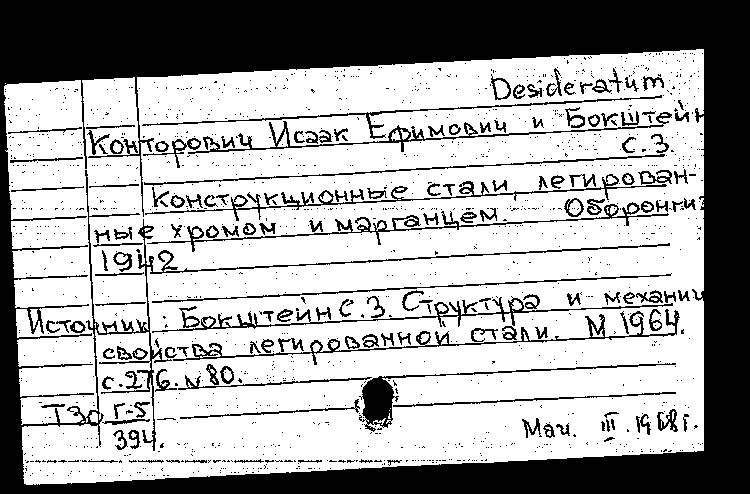 Desideratum.
Конторович Исаак Ефимович и Бокштейн
С.З.
Конструкционные стали, легирован-
ные хромом и марганцем. Оборонгиз
1942.
Источник: Бокштейн С.З. Структура и механич
свойства легированной стали. М. 1964.
с.276. №80.
ТЗО Г-5
394.
Мач. III. 1968 г.